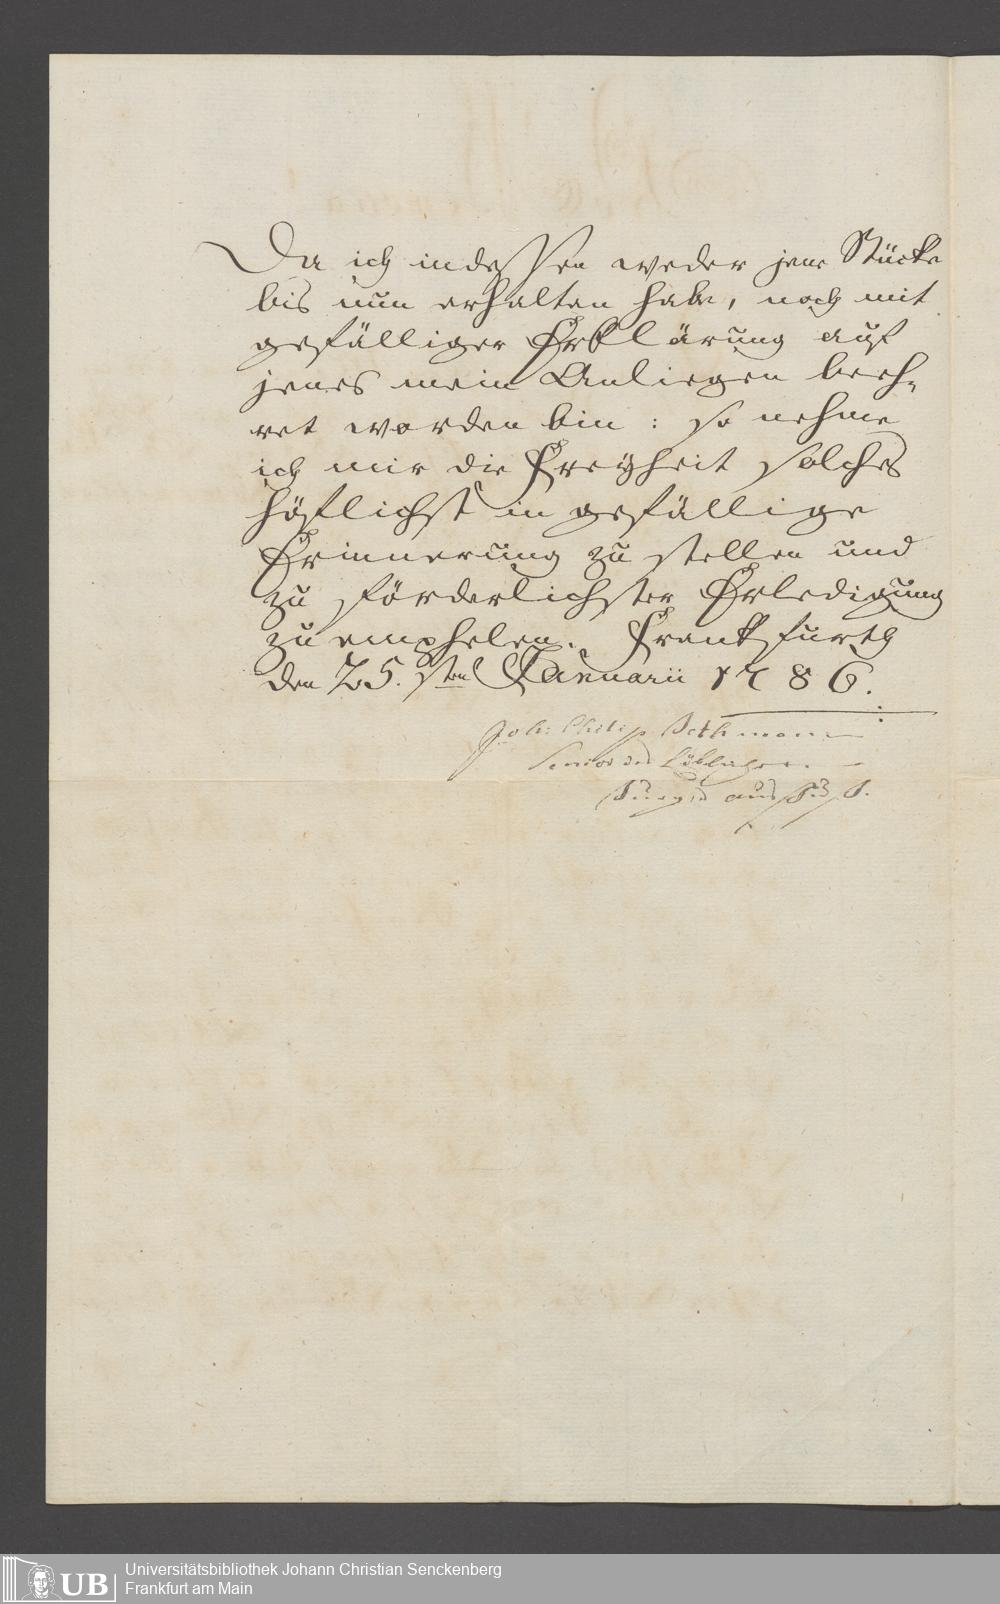 Da ich indessen weder jene Stücke
bis nun erhalten habe, noch mit
gefälliger Erklärung auf
jenes mein Anliegen beeh-
ret worden bin: so nehme
ich mir die Freyheit solches
höflichst in gefällige
Erinnerung zu stellen und
zu förderlichster Erledigung
zu emphelen. Franckfurth
den 25.sten Januarii 1786.
Joh: Philip Bethmann
Senior des Löblichen
aus
Universitätsbibliothek Johann Christian Senckenberg
UB Frankfurt am Main